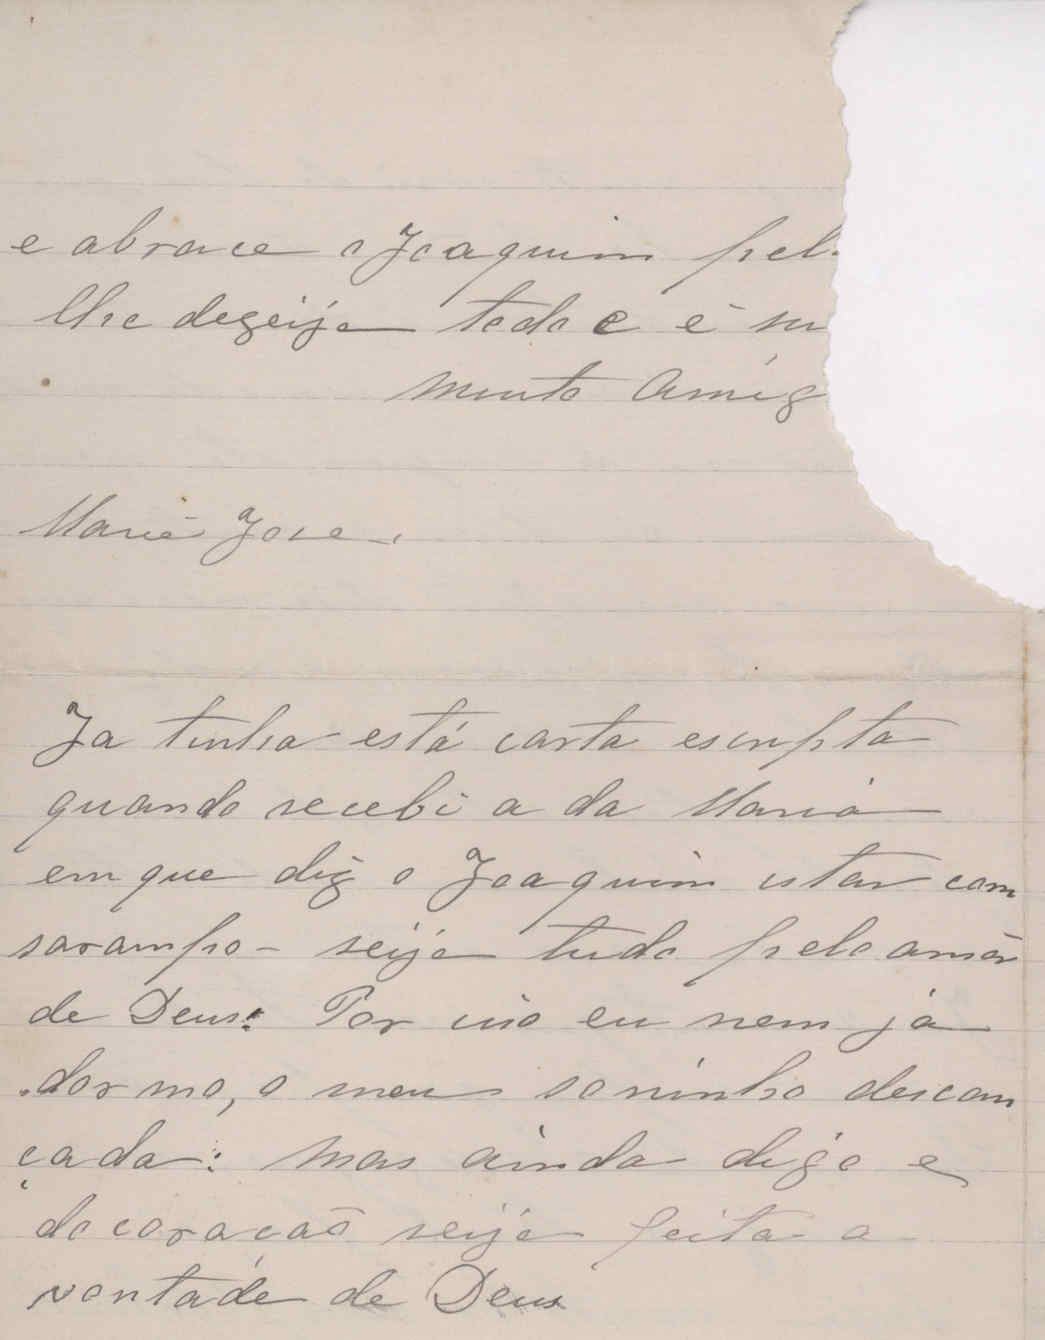 e abrace o Joaquim pel
lhe dezeija todo e é su
muito Amig
Maria Jose.
Ja tinha está carta escripta
quando recebi a da Maria
em que diz o Joaquim estar com
sarampo - seija tudo pelo amôr
de Deus: Por isso eu nem já
dormo, o meu soninho descan
çada: mas ainda digo e
do coracaõ seija feita a
vontade de Deus